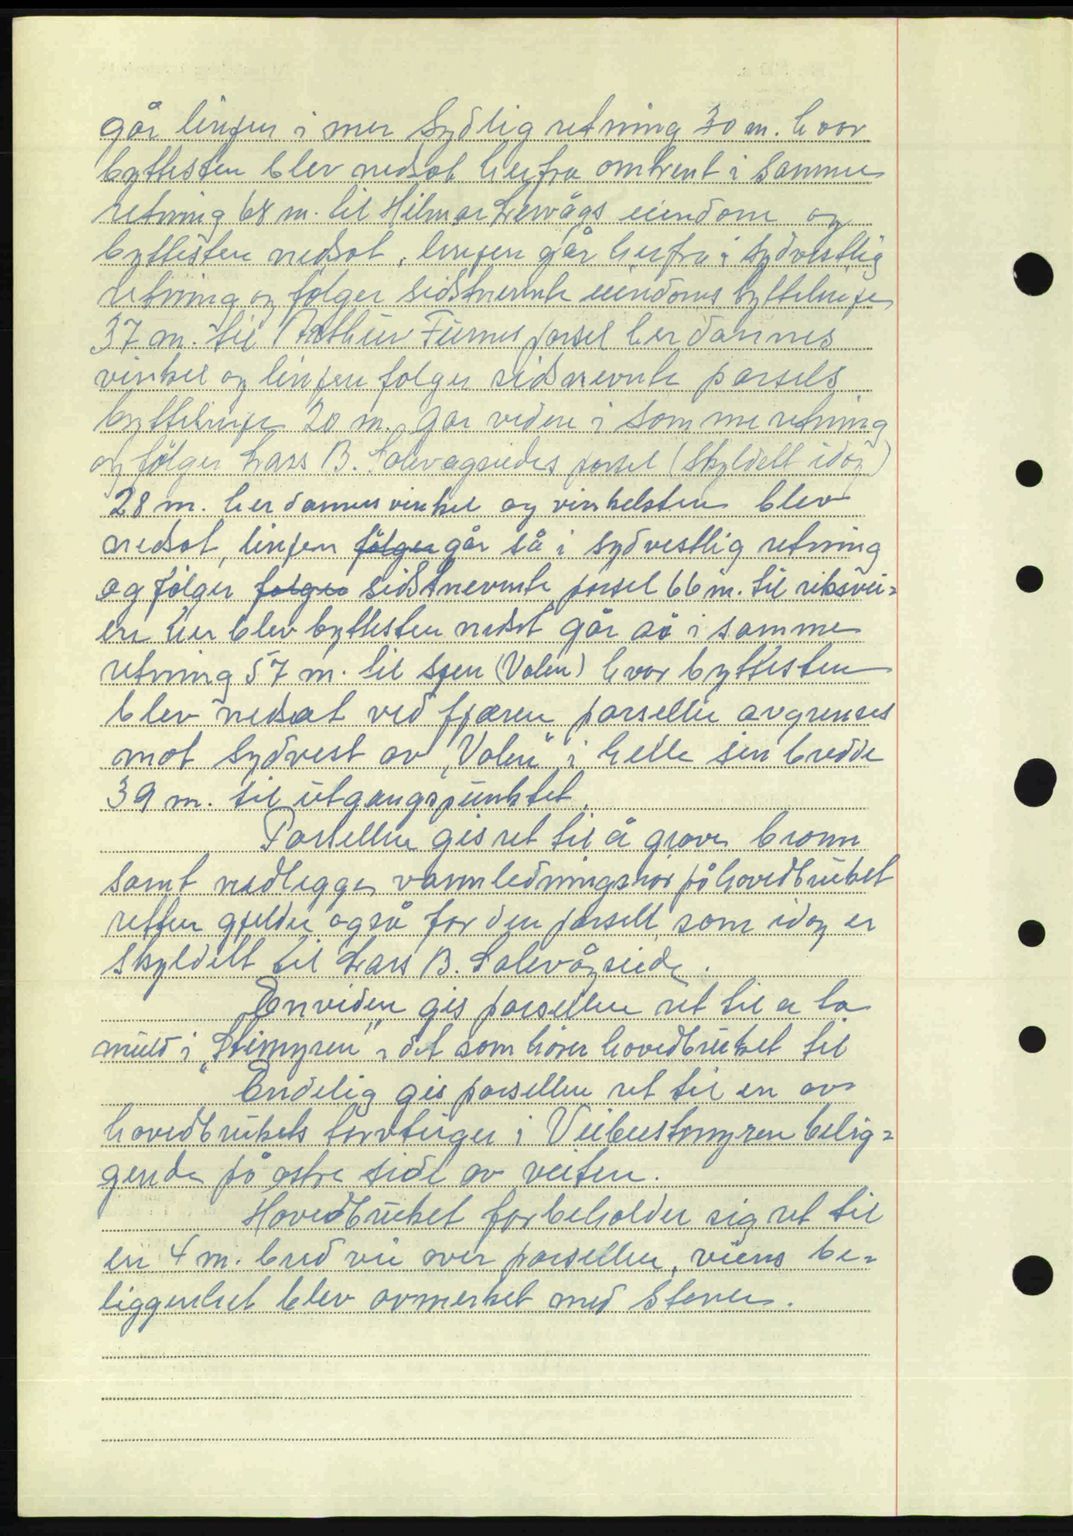 går linjen i mer sydlig retning 30 m. hvor
byttesten blev nedsat herfra omtrent i samme
retning 68 m. til Hilmar eiendom og
byttesten nedsat, linjen går herfra i sydvestlig
retning og følger sidstnevnte eiendoms byttelinje
37 m. til Arthur Furnes parsel her dannes
vinkel og linjen følger sidsnevnte parsels
byttelinje 20 m. går videre i samme retning
og følger Lars B. Solevågseides parsel (Skyldelt idag)
28 m. her dannes vinkel og vinkelsten blev
nedsat, linjen følger går så i sydvestlig retning
og følger følger sidstnevnte parsel 66 m. til riksvei=
en her blev byttesten nedsat går så i samme
retning 57 m. til sjøen (Valen) hvor byttesten
blev nedsat ved fjæren parsellen avgrenses
mot sydvest av "Valen" i hele sin bredde
39 m. til utgangspunktet.
Parsellen gis ret til å grave brønn
samt nedlegge vannledningsrør på hovedbruket
retten gjelder også for den parsell, som idag er
skyldelt til Lars B. Solevågseide.
Enviden gis parsellen ret til a ta
muld i "Stimyren", i det som hører hovedbruket til
Endelig gis parsellen ret til en av
hovedbrukets torvteiger i belig=
gende på østre side av veiten.
Hovedbruket forbeholder sig ret til
en 4 m. bred vei over parsellen, veiens be=
liggenhet blev avmerket med staver.